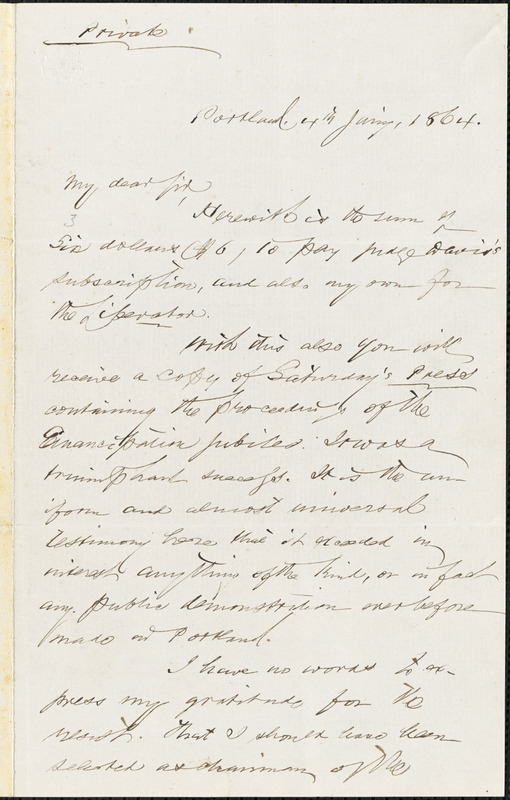 Private
Portland. 4th Jany, 1864.
My dear Sir,
Herewith is the sum of
3
Six dollars ($6,) to pay Judge Davis's
subscription, and also my own for
the Liberator.
With this also you will
receive a copy of Saturday's Press
containing the proceedings of the
Emancipation Jubilee. It was a
triumphant success. It is the uni-
form and almost universal
testimony here that it exceeded in
interest anything of the kind, or in fact
any public demonstration ever before
made in Portland.
I have no words to ex-
press my gratitude for the
result. That I should have been
selected as chairman of the